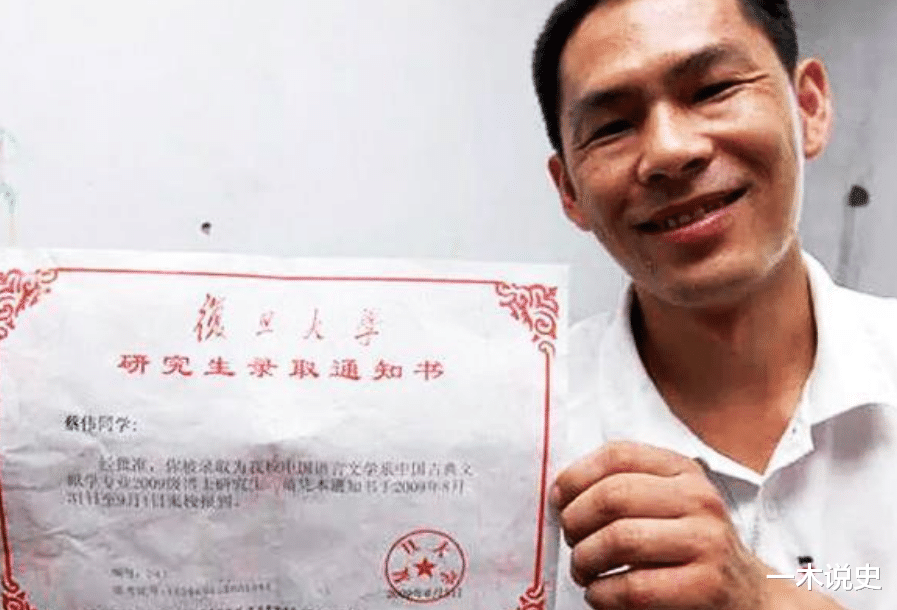 復旦大学
研究生录取通知书
蔡伟同学:
经批准，你被录取为我校中国语言文学系中国古典文
献学专业2009级博士研究生。请凭本通知书于2009年8月
31日至9月1日来校报到。
一木说史